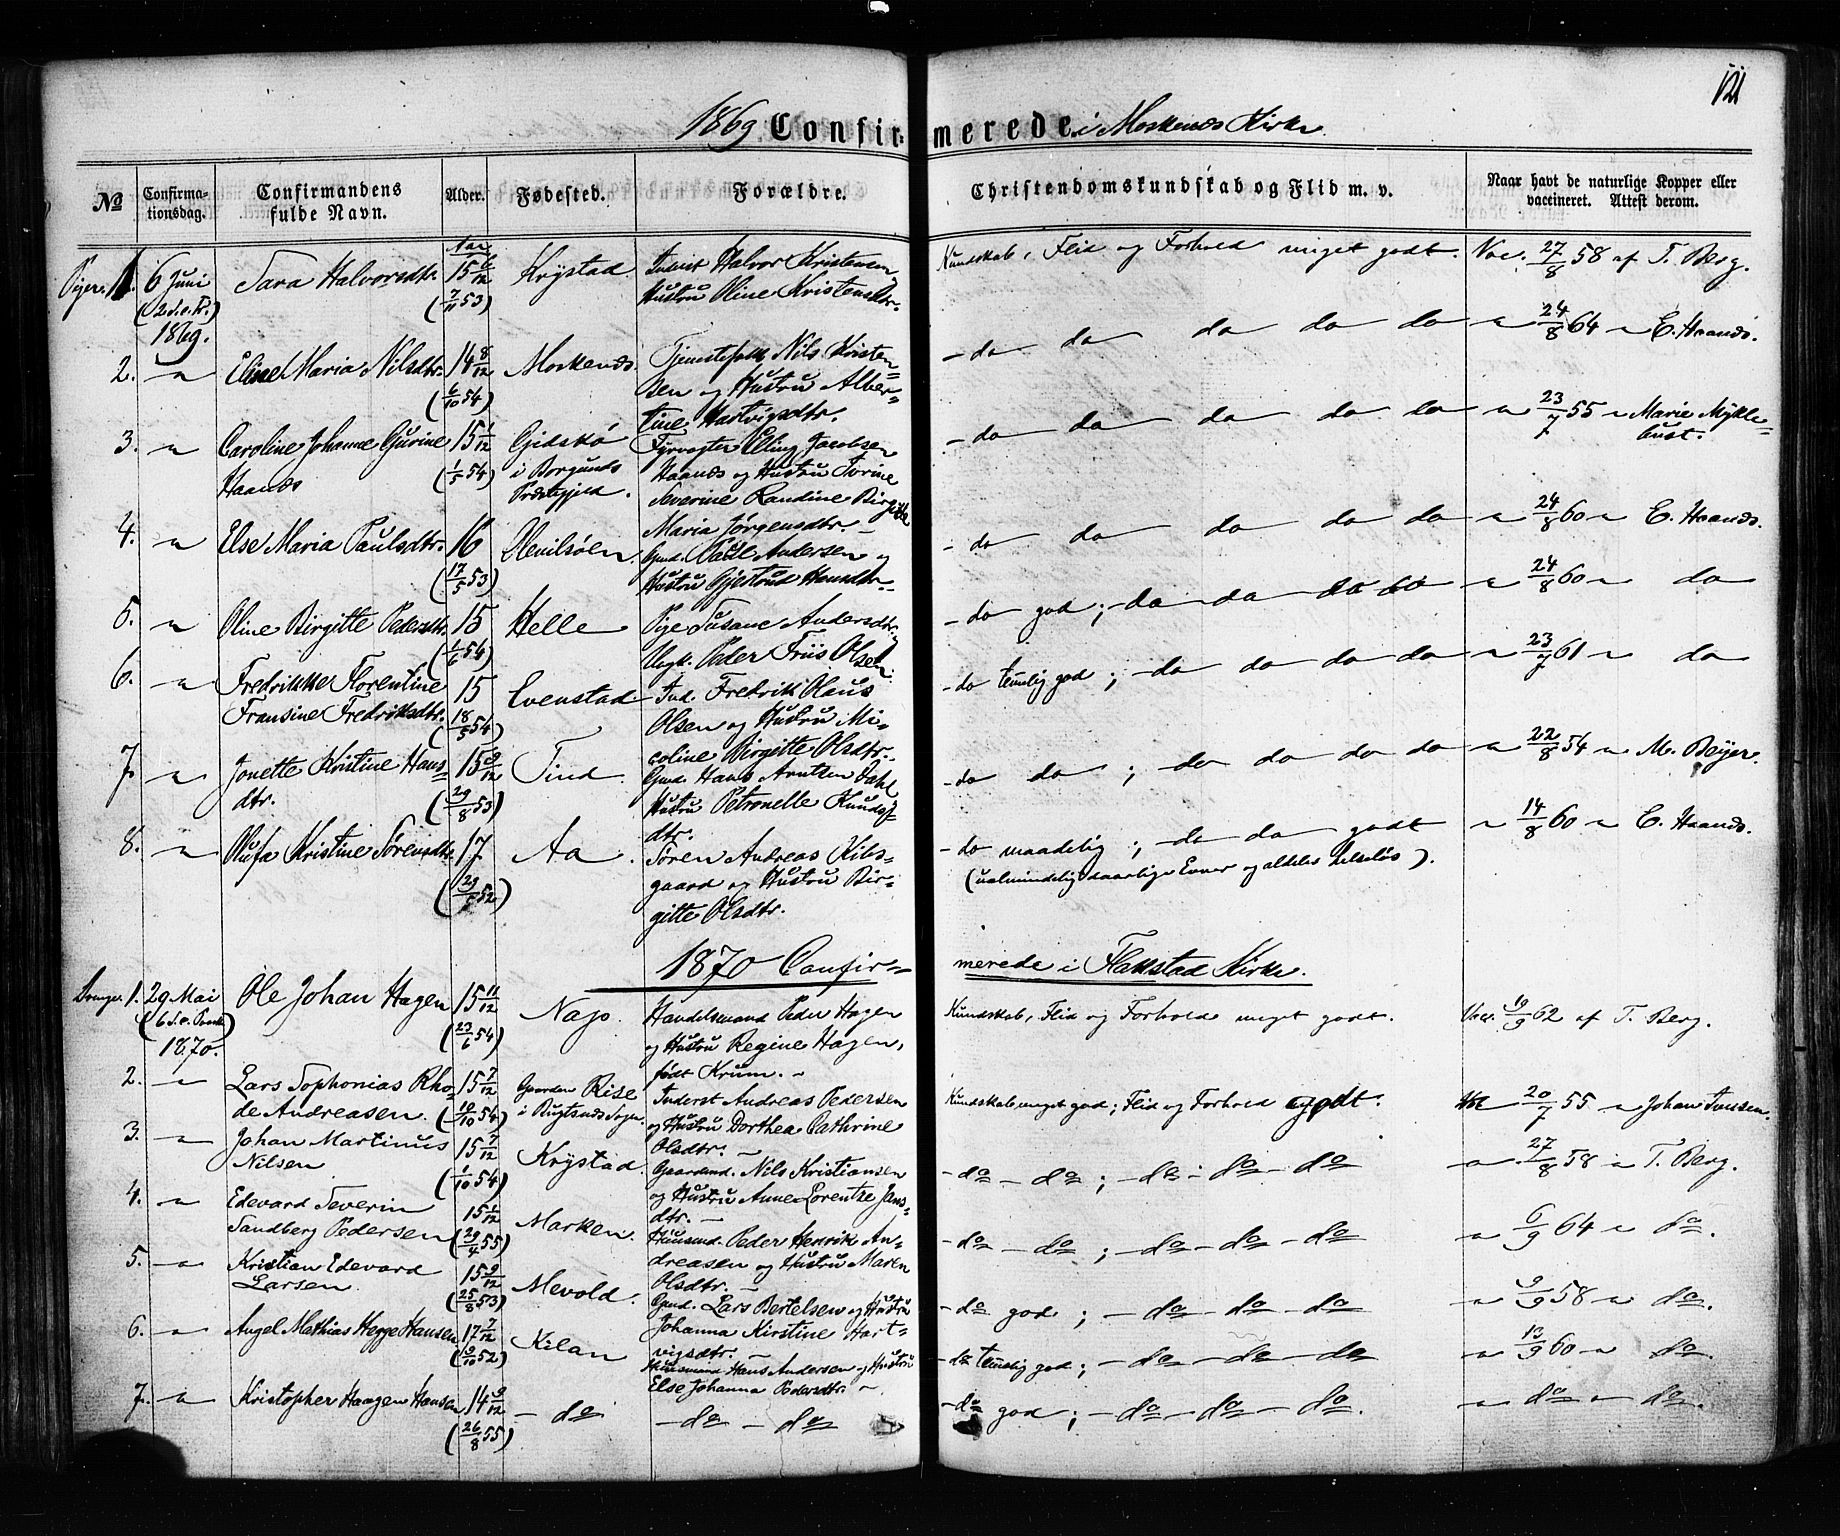 121
1869 Confirmerede i Moskenæs Kirke
No
Confirmationsdag.
Confirmandens fulde Navn.
Alder.
Fødested.
Forældre.
Christendomskundskab og Flid m. v.
Naar havt de naturlige Kopper eller vaccineret. Attest derom.
Piger. 1. 6 Juni (2 S. e. Tr.) 1869. Sara Halvorsdtr. Aar 15 6/12 (7/11 53) Krystad Inderst Halvor Kristensen, Hustru Oline Kristensdtr. Kundskab, Flid og Forhold meget godt. Vac. 27/8 58 af T. Berg.
2. " Eline Maria Nilsdtr. 14 8/12 (6/10 54) Moskenæs. Tjenestefolk Nils Kristensen og Hustru Albertine Hartvigsdtr. - do do do do do " 24/8 64 " E. Haanæs.
3. " Caroline Johanne Gurine Haanæs 15 1/12 (1/5 54) Gidskø i Borgunds Præstegjeld. Fyrvogter Elling Jacobsen Haanæs og Hustru Torine Severine Randine Birgitte Maria Jørgensdtr. - do do do do do " 23/7 55 " Marie Myklebust.
4. " Else Maria Paulsdtr. 16 (17/5 53) Olenilsøen. Gmd. Paul Andersen og Hustru Gjertrud Hansdtr. - do do do do do " 24/8 60 " E. Haanæs.
5. " Oline Birgitte Pedersdtr. 15 (1/6 54) Helle Pige Susane Andersdtr. Ungk. Peder Friis Olsen - do god; - do do do do " 24/8 60 " do
6. " Fredrikke Florentine Fransine Fredriksdtr. 15 (18/5 54) Evenstad Ind. Fredrik Olaus Olsen og Hustru Micoline Birgitte Olsdtr. - do temlig god; - do do do do " 23/7 61 " do
7. " Jonette Kristine Hansdtr. 15 9/12 (29/8 53) Tind. Gmd. Hans Arntsen Dahl Hustru Petronelle Knudsdtr. - do do; - do do do do " 22/8 54 " M. Beyer.
8. " Olufa Kristine Sørensdtr. 17 Aa. Søren Andreas Kibsgaard og Hustru Birgitte Olsdtr. - do maadelig; - do do godt (ualmindelig daarlige Evner og aldeles helseløs). " 14/8 60 " E. Haanæs.
1870 Confirmerede i Flakstad Kirke.
Drenge. 1. 29 Mai (6 S. e. Paaske) 1870. Ole Johan Hagen 15 11/12 (23/6 54) Naps. Handelsmand Peder Hagen og Hustru Regine Hagen, født Krum. - Kundskab, Flid og Forhold meget godt. Vac. 19/9 62 af T. Berg.
2. " Lars Sophonias Rhode Andreasen. 15 7/12 (10/10 54) Gaarden Rise i Bugtsnæs Sogn. Inderst Andreas Pedersen og Hustru Dorthea Cathrine Olsdtr. - Kundskab meget god; Flid og Forhold godt. Vac 20/7 55 " Johan Iversen.
3. " Johan Martinus Nilsen 15 7/12 (1/10 54) Krystad. Gaardmd. Nils Kristiansen og Hustru Anne Lorentze Jansdtr. - - do - do; - do - do - do " 27/8 58 " T. Berg.
4. " Edevard Severin Sandberg Pedersen 15 1/12 (29/4 55) Marken. Huusmd. Peder Henrik Andreasen og Hustru Maren Olsdtr. - - do - do; - do - do - do " 6/9 64 " do.
5. " Kristian Edevard Larsen. 15 9/12 (25/8 53) Mevold. Gmd. Lars Bertelsen og Hustru Johanna Kirstine Hartvigsdtr. - - do god; - do - do - do " 9/9 58 " do.
6. " Angel Mathias Hegge Hansen 17 7/12 (9/10 52) Kilan Huusmand Hans Andersen og Hustru Else Johanna Pedersdtr. - - do temlig god; - do - do - do " 13/9 60 " do.
7. " Kristopher Haagen Hansen 14 9/12 (26/8 55) - do - do - do - do god; - do - do - do. " do " do.